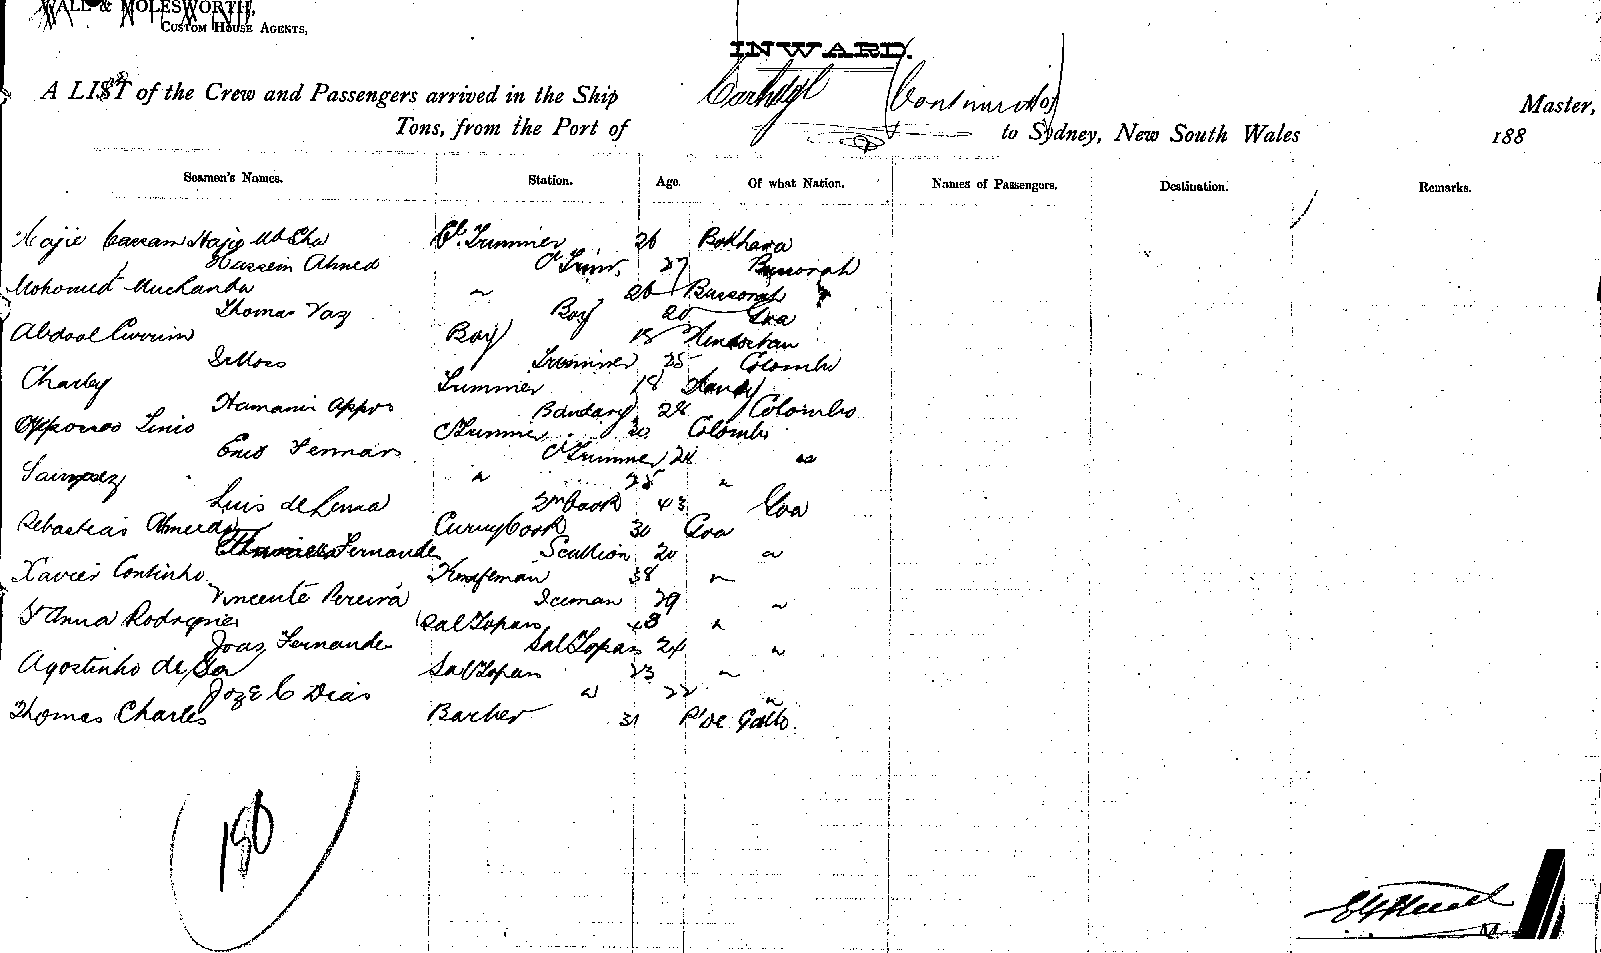 WALL & MOLESWORTH,
CUSTOM HOUSE AGENTS,
INWARD.
A LIST of the Crew and Passengers arrived in the Ship Continued of Master,
Tons, from the Port of to Sydney, New South Wales 188
Seamen's Names. Station. Age. Of what Nation. Names of Passengers. Destination. Remarks.
Hajie Cassam Hajie C. Trimmer 26 Bokhara
Hussein Ahmed C Trimr. 27 Bussorah
Mohomed Muchanda " 26 Bussorah
Thomas Vaz Boy 20 Goa
Abdool Currim Boy 18 Hindostan
Trimmer 25 Colombo
Charley Trimmer 18 Kandy
Appos Bandary 28 Colombo
Linio C Trimmer 30 Colombo
C Trimmer 24 "
" 25 "
Luis de Lima 3rd Cook 43 Goa
Sebastiao Almeida Curry Cook 30 Goa
Fernandes Scullion 20 "
Xavier Continho Knifeman 38 "
Vincente Pereira Iceman 29 "
St Anna Rodrigues Sal Topas 48 "
Joas Fernandes Sal Topas 24 "
Agostinho de Sa Sal Topas 23 "
Joze C Dias " 22 "
Thomas Charles Barber 31 Pt De Galle.
150